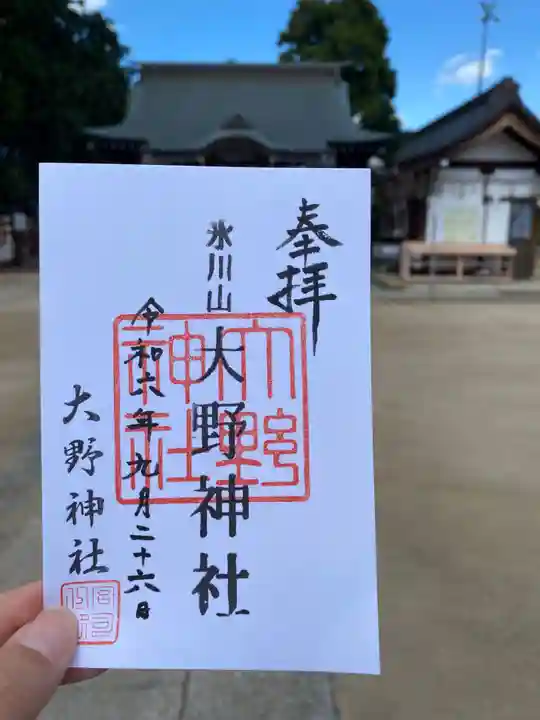 奉拝
氷川山
大野神社
大野神社
令和六年九月二十六日
大野神社